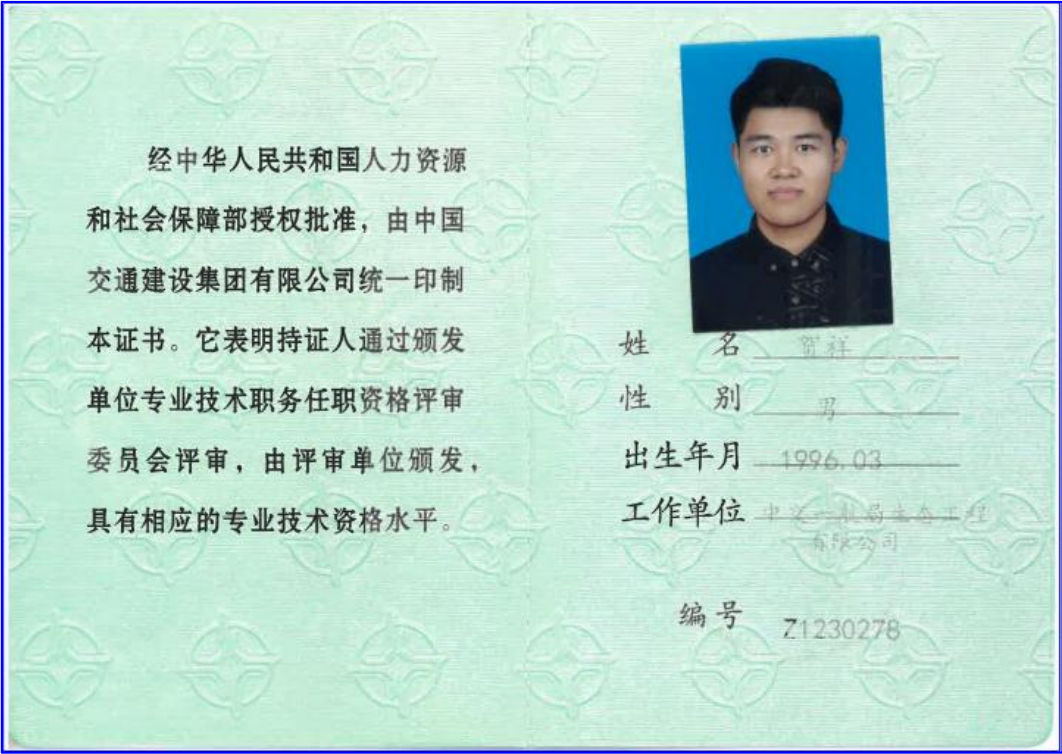 经中华人民共和国人力资源
和社会保障部授权批准，由中国
交通建设集团有限公司统一印制
本证书。它表明持证人通过颁发
单位专业技术职务任职资格评审
委员会评审，由评审单位颁发，
具有相应的专业技术资格水平。
姓 名 贺祥
性 别 男
出生年月 1996.03
工作单位 中交一航局生态工程
有限公司
编号 Z1230278